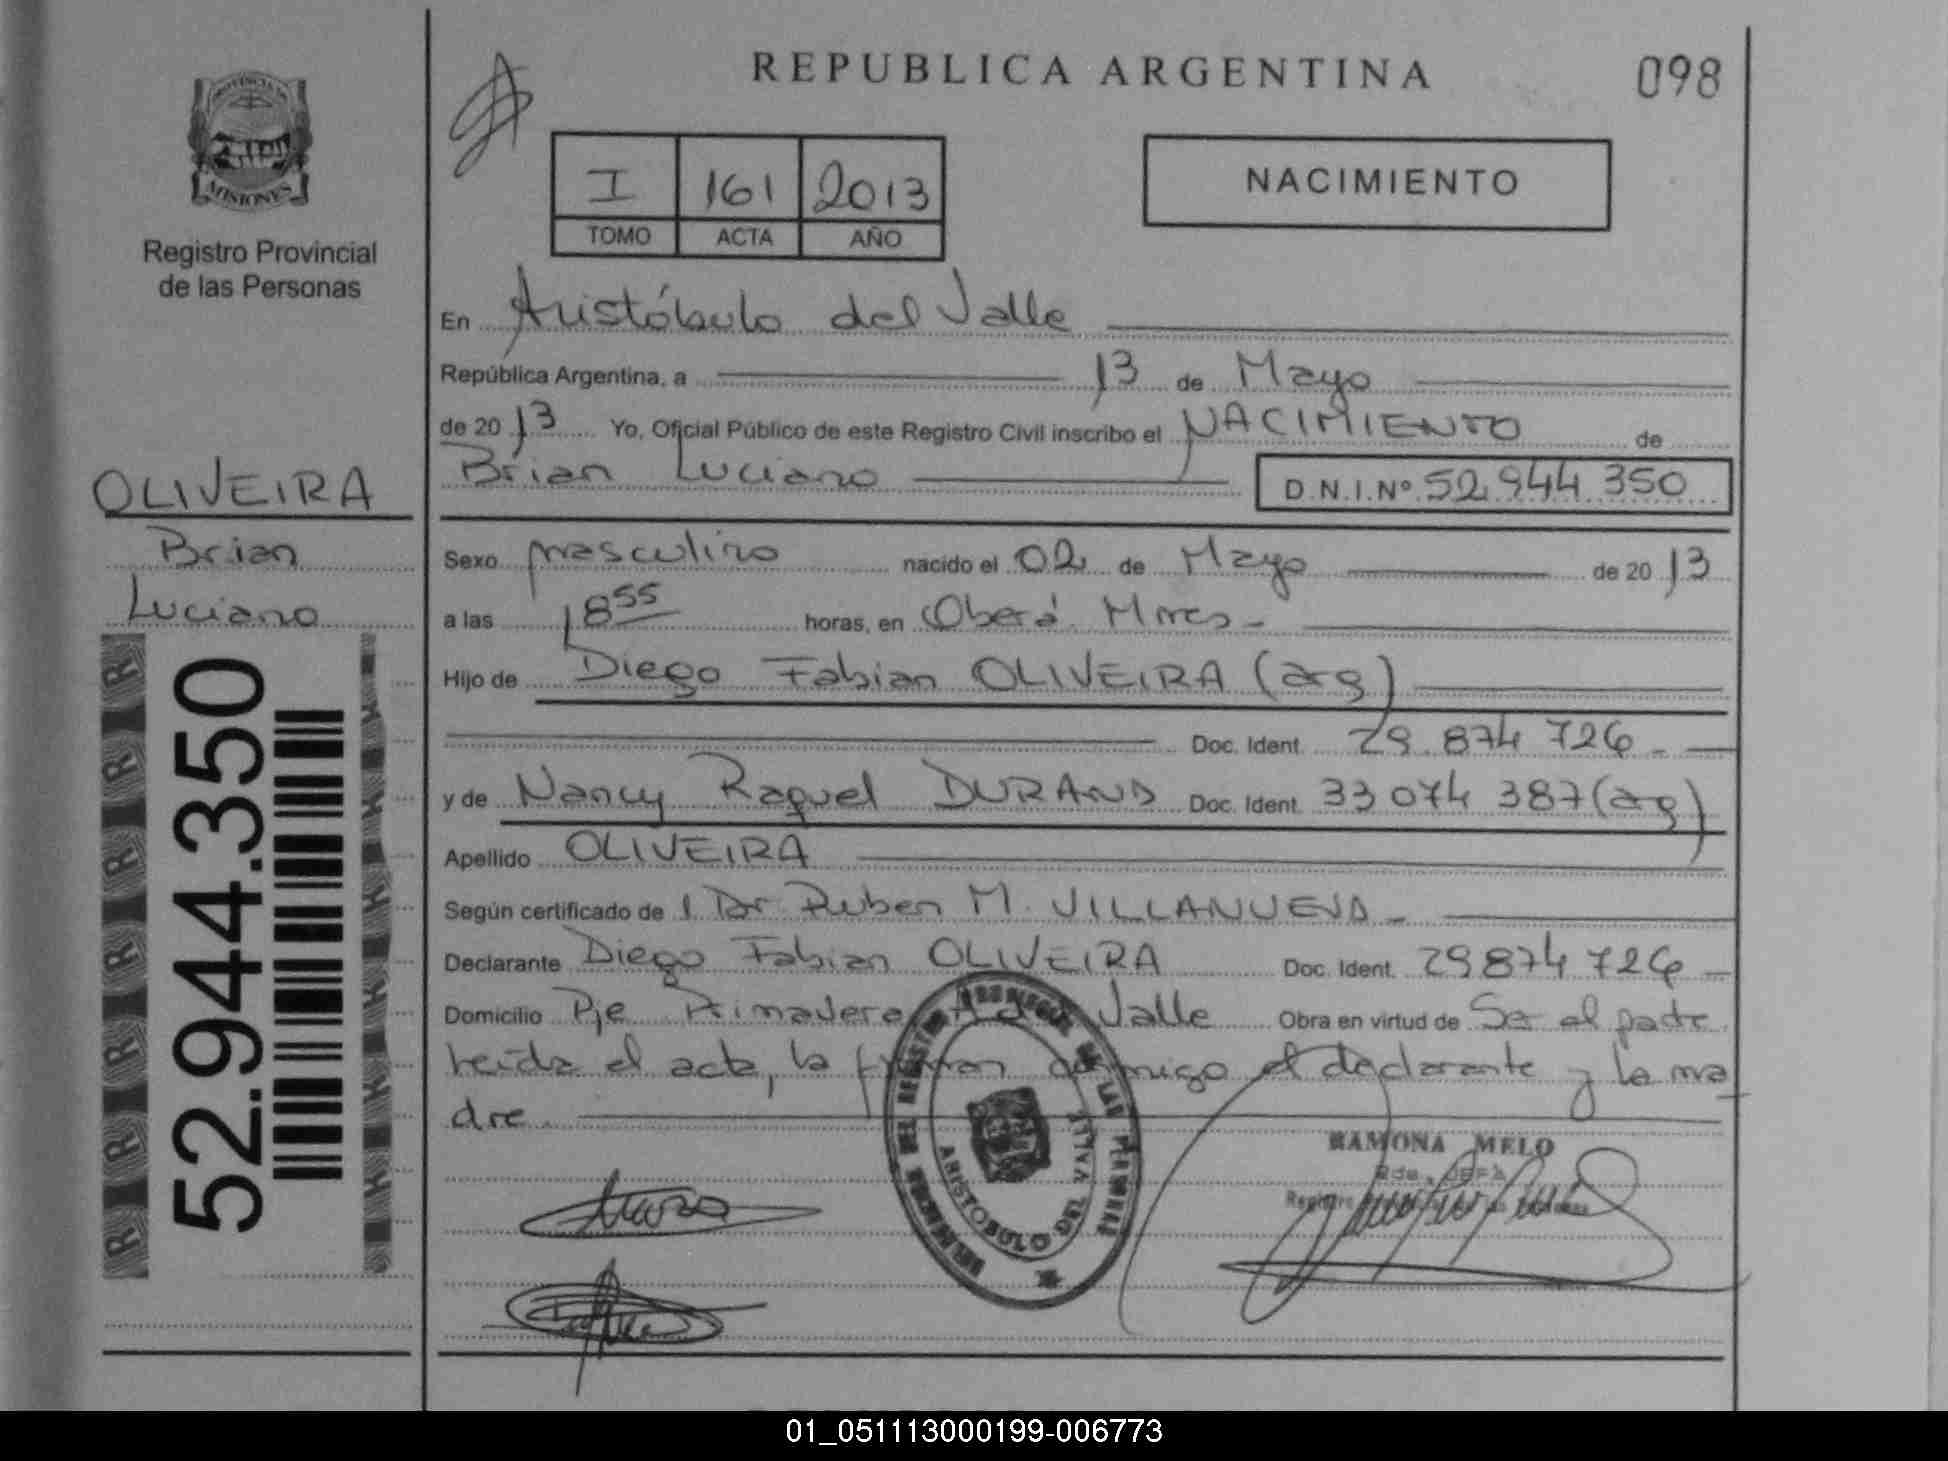 REPUBLICA ARGENTINA
098
PROVINCIA DE
MISIONES
Registro Provincial
de las Personas
I 161 2013
TOMO ACTA AÑO
NACIMIENTO
En Aristóbulo del Valle
República Argentina, a 13 de Mayo
de 2013 Yo, Oficial Público de este Registro Civil inscribo el NACIMIENTO de
Brian Luciano D.N.I.Nº 52.944.350
OLIVEIRA
Brian
Luciano
52.944.350
Sexo masculino nacido el 02 de Mayo de 2013
a las 18 55 horas, en Oberá Mnes-
Hijo de Diego Fabian OLIVEIRA (arg)
Doc. Ident. 29.874 726-
y de Nancy Raquel DURAND Doc. Ident. 33 074 387 (arg)
Apellido OLIVEIRA
Según certificado de l Dr. Ruben M. VILLANUEVA-
Declarante Diego Fabian OLIVEIRA Doc. Ident. 29874 726-
Domicilio Pje Primavera Valle Obra en virtud de Ser el padre
leida el acta, la firman conmigo el declarante y la ma
dre.
RAMONA MELO
JEFA
Registro
ARISTOBULO DEL VALLE
DEL REGISTRO DE LAS PERSONAS
01_051113000199-006773